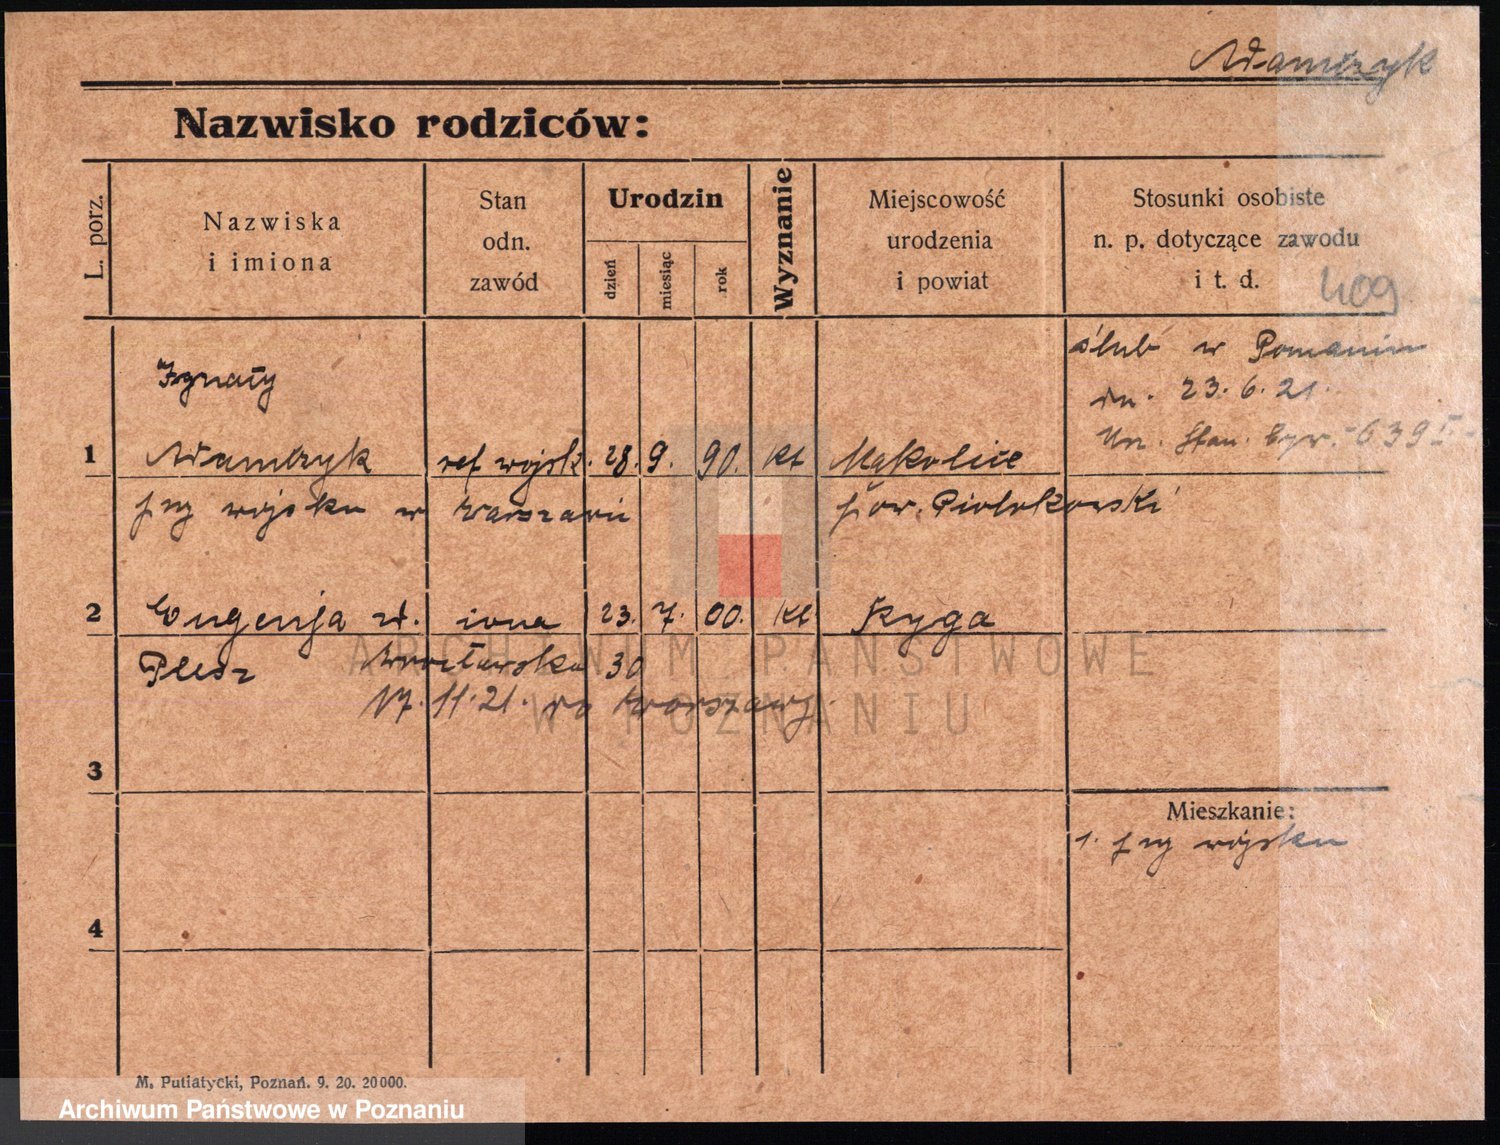 Adamczyk
Nazwisko rodziców:
L. porz.
Nazwiska
i imiona
Stan
odn.
zawód
Urodzin
dzień
miesiąc
rok
Wyznanie
Miejscowość
urodzenia
i powiat
Stosunki osobiste
n. p. dotyczące zawodu
i t. d.
409
ślub w Poznaniu
dn. 23.6.21.
Urz. Stan. Cyw. 639
Ignacy
1 Adamczyk ref wojsk. 28. 9. 90. kt Mąkolice
przy wojsku w Warszawie pow. Piotrkowski
2 Eugenja żona 23. 7. 00. kt Ryga
Wrocławska 30
17.11.21. do Warszawy
3
Mieszkanie:
1. przy wojsku
4
ARCHIWUM PAŃSTWOWE
W POZNANIU
M. Putiatycki, Poznań. 9. 20. 20000.
Archiwum Państwowe w Poznaniu